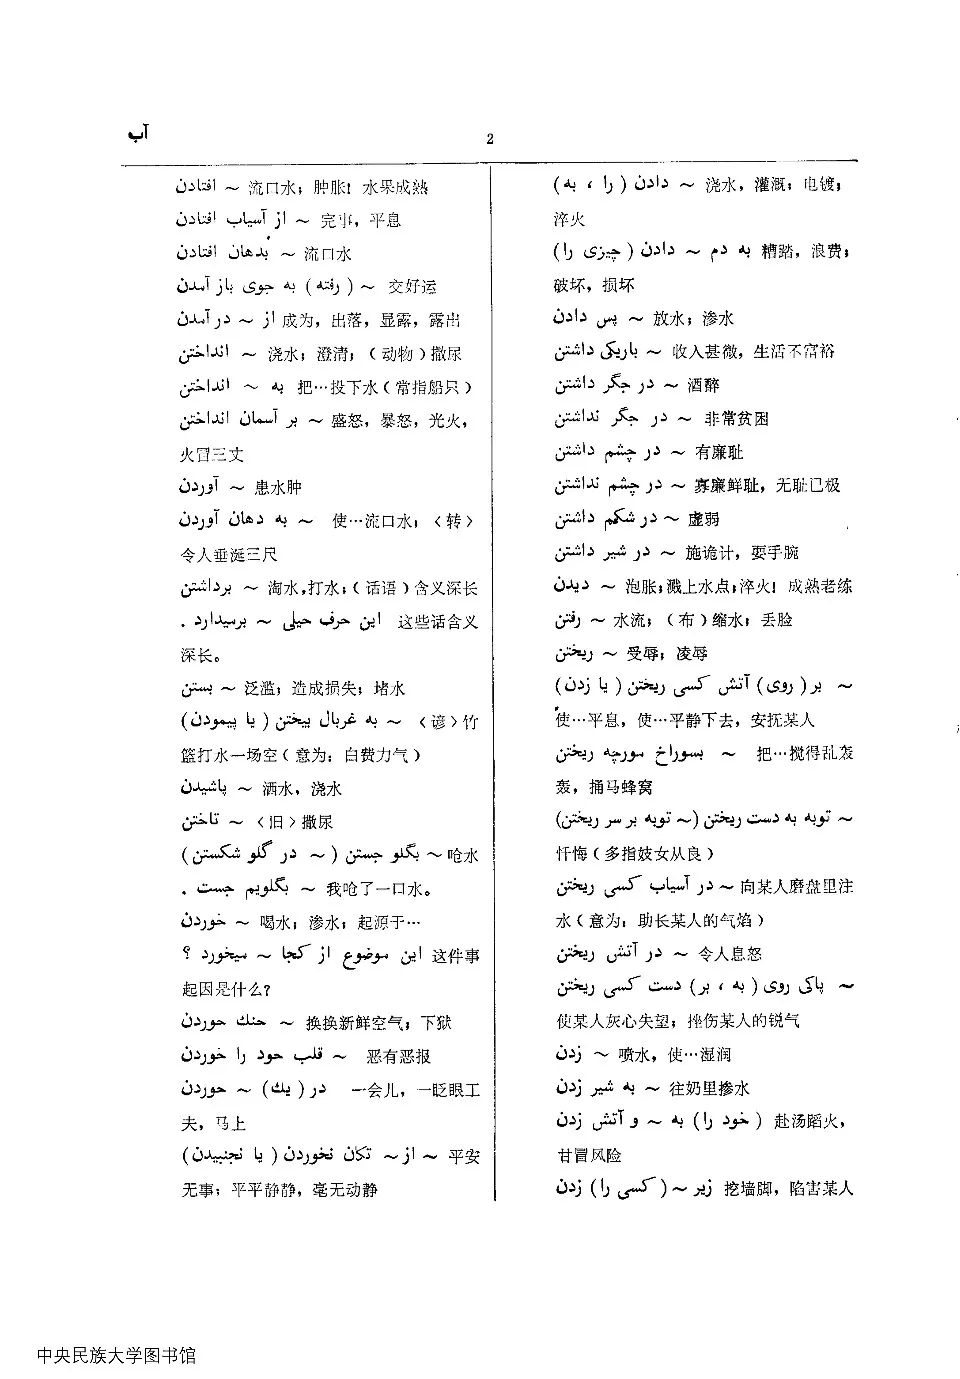 آب
2
افتادن ~ 流口水；肿胀！水果成熟
از آسیاب افتادن ~ 完事，平息
بدهان افتادن ~ 流口水
به جوی باز آمدن (رفته) ~ 交好运
از ~ در آمدن 成为，出落，显露，露出
انداختن ~ 浇水；澄清；（动物）撒尿
به ~ انداختن 把…投下水（常指船只）
بر آسمان انداختن ~ 盛怒，暴怒，光火，
火冒三丈
آوردن ~ 患水肿
به دهان آوردن ~ 使…流口水；〈转〉
令人垂涎三尺
برداشتن ~ 淘水，打水；（话语）含义深长
این حرف خیلی ~ برمیدارد . 这些话含义
深长。
بستن ~ 泛滥；造成损失；堵水
به غربال بیختن (یا پیمودن) ~ 〈谚〉竹
篮打水一场空（意为：白费力气）
پاشیدن ~ 洒水，浇水
تاختن ~ 〈旧〉撒尿
بگلو جستن (~ در گلو شکستن) ~ 呛水
بگلویم جست . ~ 我呛了一口水。
خوردن ~ 喝水；渗水；起源于…
این موضوع از کجا ~ میخورد ؟ 这件事
起因是什么？
خنك خوردن ~ 换换新鲜空气；下狱
قلب خود را خوردن ~ 恶有恶报
در (یك) ~ خوردن 一会儿，一眨眼工
夫，马上
از ~ تکان نخوردن (یا نجنبیدن) ~ 平安
无事；平平静静，毫无动静
دادن (را ، به) ~ 浇水，灌溉；电镀；
淬火
به دم ~ دادن (چیزی را) 糟踏，浪费；
破坏，损坏
پس دادن ~ 放水；渗水
باریکی داشتن ~ 收入甚微，生活不富裕
در جگر داشتن ~ 酒醉
در جگر نداشتن ~ 非常贫困
در چشم داشتن ~ 有廉耻
در چشم نداشتن ~ 寡廉鲜耻，无耻已极
در شکم داشتن ~ 虚弱
در شیر داشتن ~ 施诡计，耍手腕
دیدن ~ 泡胀；溅上水点；淬火！成熟老练
رفتن ~ 水流；（布）缩水；丢脸
ریختن ~ 受辱；凌辱
بر (روی) آتش کسی ریختن (یا زدن) ~
使…平息，使…平静下去，安抚某人
بسوراخ مورچه ریختن ~ 把…搅得乱轰
轰，捅马蜂窝
توبه به دست ریختن (~ توبه بر سر ریختن) ~
忏悔（多指妓女从良）
در آسیاب کسی ریختن ~ 向某人磨盘里注
水（意为：助长某人的气焰）
در آتش ریختن ~ 令人息怒
پاکی روی (به ، بر) دست کسی ریختن ~
使某人灰心失望；挫伤某人的锐气
زدن ~ 喷水，使…湿润
به شیر زدن ~ 往奶里掺水
(خود را) به ~ و آتش زدن 赴汤蹈火，
甘冒风险
زیر ~ (کسی را) زدن 挖墙脚，陷害某人
中央民族大学图书馆